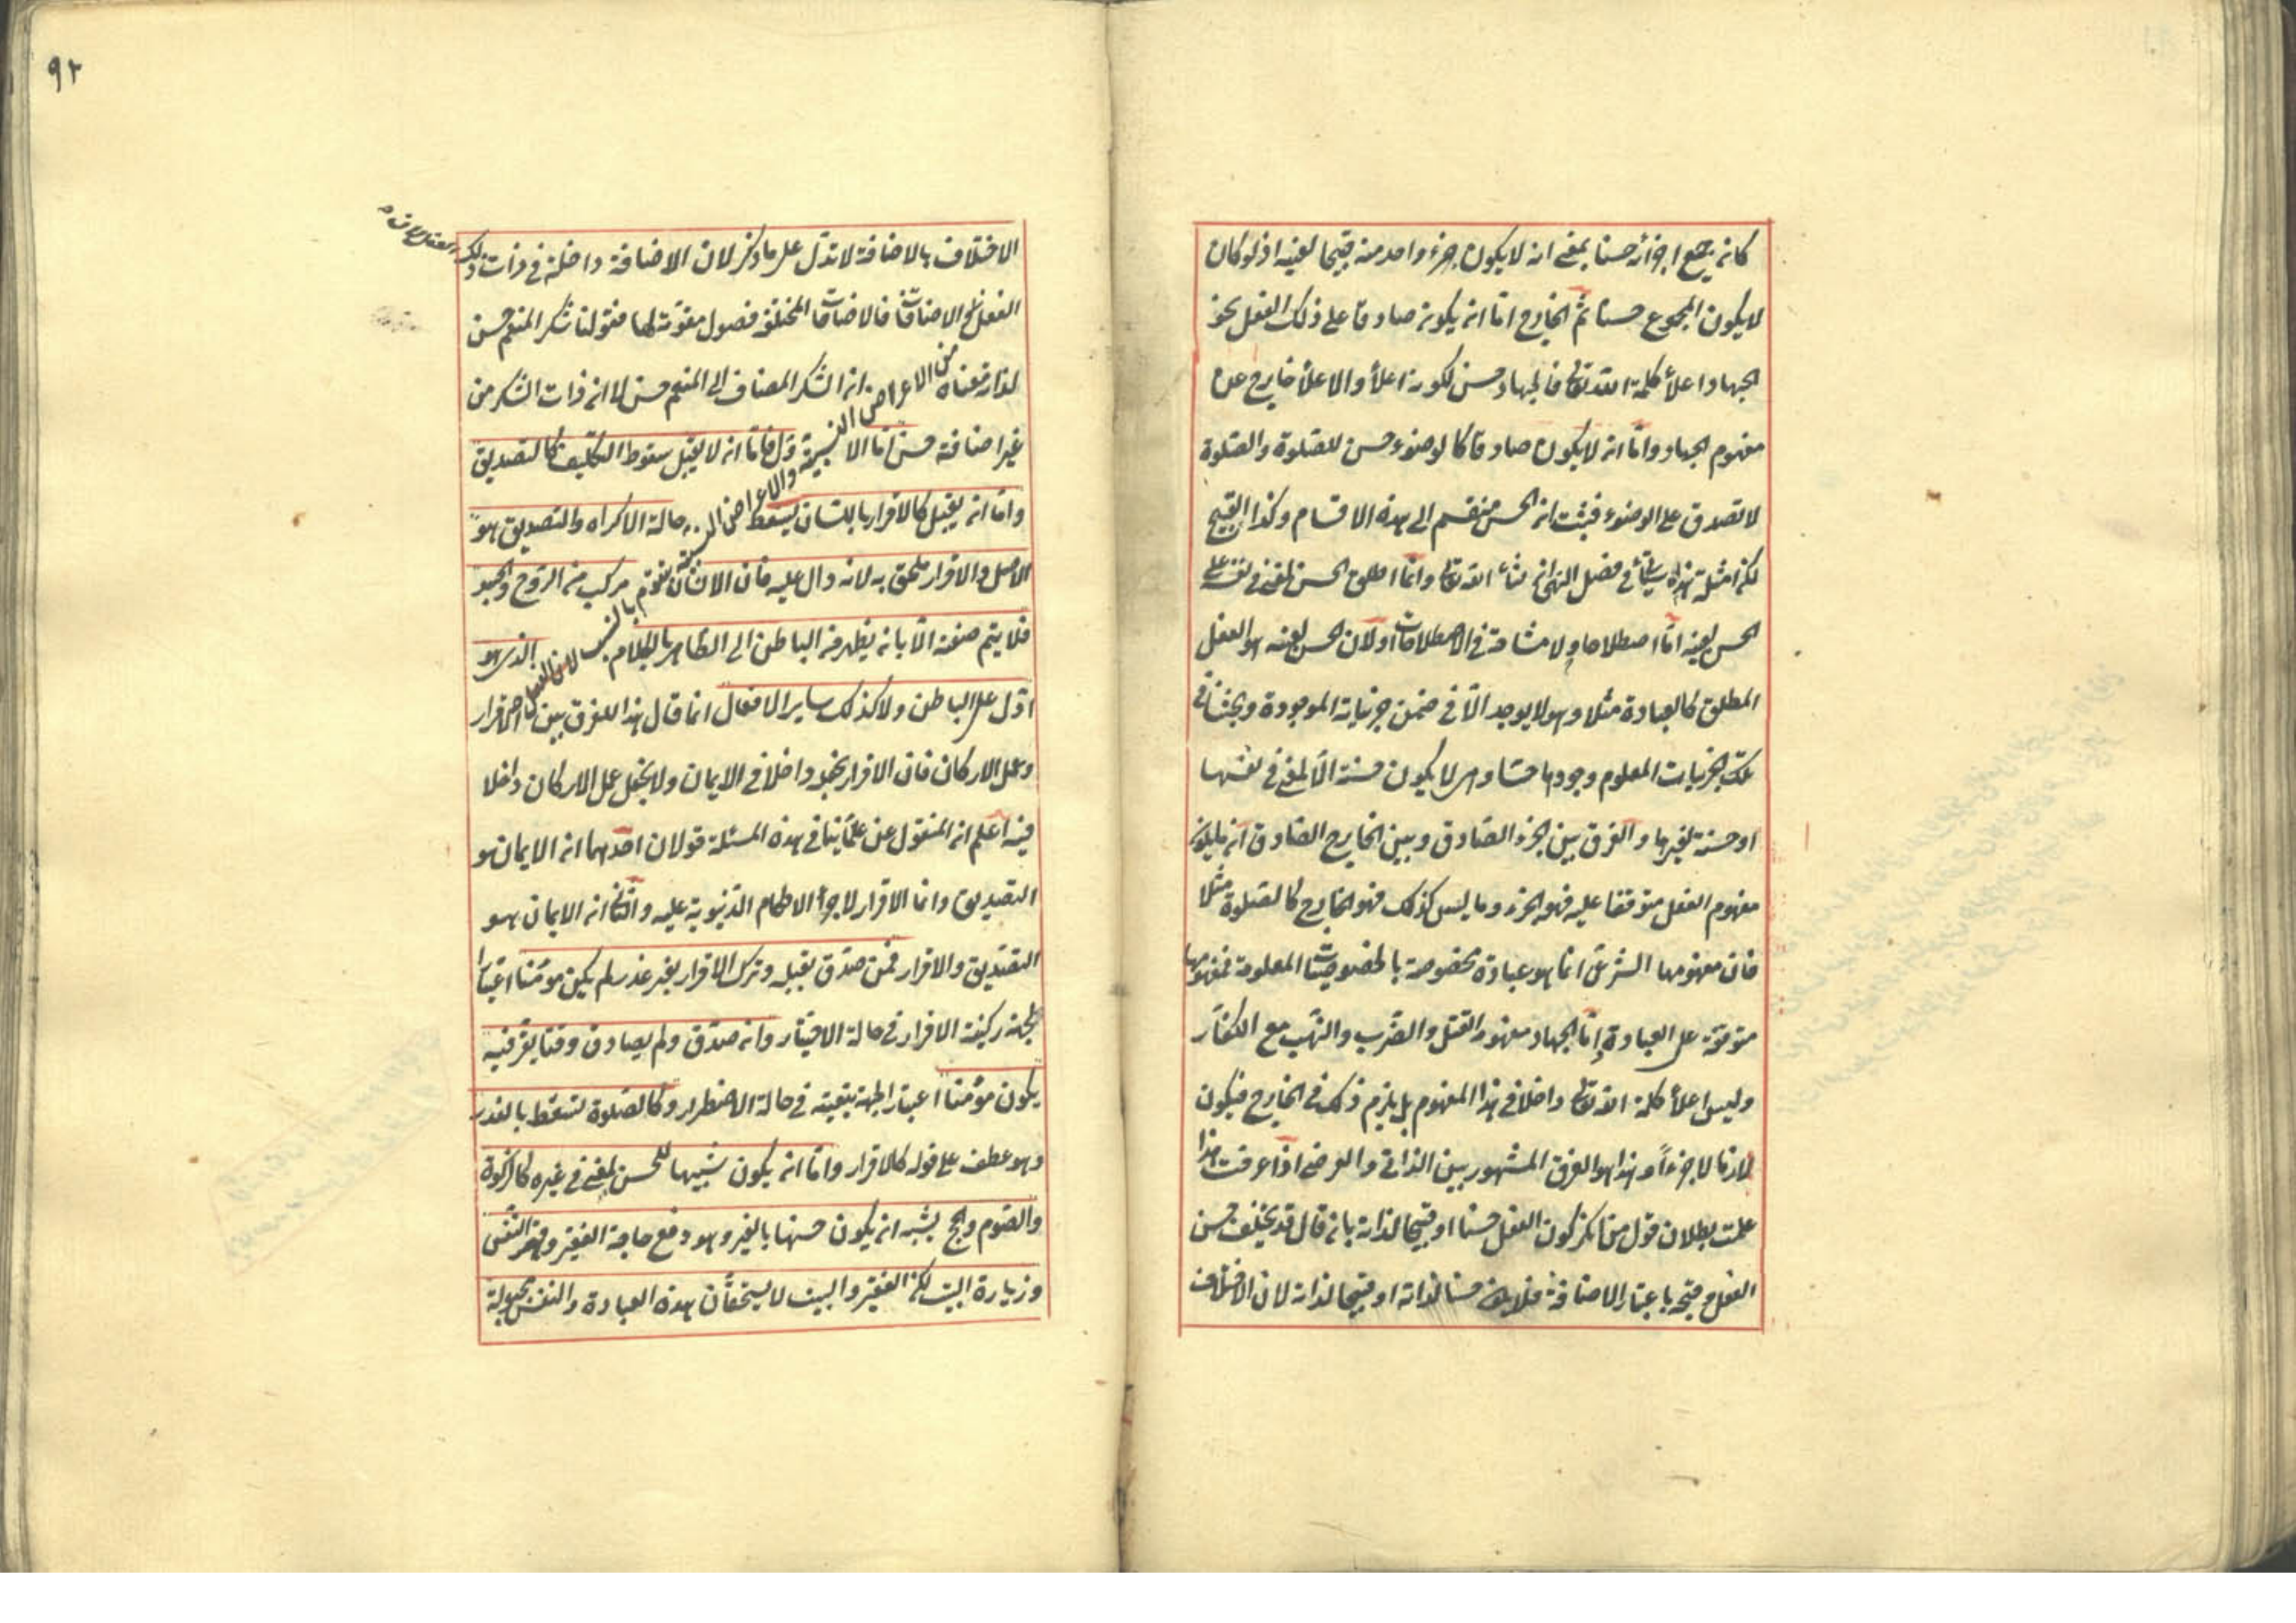 كان جميع اجزائه حسنا بمعنى انه لا يكون جزء واحد منه قبيحا لعينه اذ لو كان
لا يكون المجموع حسنا ثم الخارج اما ان يكون صادقا على ذلك الفعل نحو
الجهاد اعلاء كلمة الله تعالى فالجهاد حسن لكونه اعلاء والاعلاء خارج عن
مفهوم الجهاد واما ان لا يكون صادقا كالوضوء حسن للصلوة والصلوة
لا تصدق على الوضوء فثبت ان الحسن منقسم الى هذه الاقسام وكذا القبيح
لكن امثلة هذا سيأتي في فصل النهي ان شاء الله تعالى وانما اطلق الحسن لمعنى في نفسه على
الحسن لعينه اما اصطلاحا ولا مشاحة في الاصطلاحات اولان الحسن لعينه هو الفعل
المطلق كالعبادة مثلا وهو لا يوجد الا في ضمن جزئياته الموجودة وبحثنا في
تلك الجزئيات المعلوم وجودها حسا وهي لا يكون حسنة الا لمعنى في نفسها
او حسنة لغيرها والفرق بين الجزء الصادق وبين الخارج الصادق ان ما يكون
مفهوم الفعل متوقفا عليه فهو الجزء وما ليس كذلك فهو الخارج كالصلوة مثلا
فان مفهومها الشرعي انما هو عبادة مخصوصة بالخصوصيات المعلومة فمفهومها
متوقف على العبادة اما الجهاد مفهومه القتل والضرب والنهب مع الكفار
وليس اعلاء كلمة الله تعالى داخلا في هذا المفهوم بل يلزم ذلك في الخارج فيكون
لازما لا جزءا وهذا هو الفرق المشهور بين الذاتي والعرضي اذا عرفت هذا
علمت بطلان قول من انكر كون الفعل حسنا او قبيحا لذاته بان قال قد يختلف حسن
الفعل وقبحه باعتبار الاضافة فلا يكون حسنا لذاته او قبيحا لذاته لان الاختلاف
٩٢
الاختلاف بالاضافة لا تدل على ما ذكر لان الاضافة داخلة في ذات ذلك
الفعل الاضافات فالاضافات المختلفة فصول مقومة لها فقولنا شكر المنعم حسن
لذاته معناه ان الشكر المضاف الى المنعم حسن لا ان ذات الشكر من
غير اضافة حسن اما الاول فاما ان لا يقبل سقوط التكليف كالتصديق
واما ان يقبل كالاقرار باللسان يسقط حالة الاكراه والتصديق هو
الاصل والاقرار ملحق به لانه دال عليه فان الانسان مركب من الروح والجسد
فلا يتم صفة الا بان يظهر من الباطن الى الظاهر بالكلام الذي هو
ادل على الباطن ولا كذلك ساير الافعال انما قال هذا للفرق بين الاقرار
وعمل الاركان فان الاقرار يجعل داخلا في الايمان ولا يجعل عمل الاركان داخلا
فيه اعلم ان المنقول عن علمائنا في هذه المسئلة قولان احدهما ان الايمان هو
التصديق وانما الاقرار لاجراء الاحكام الدنيوية عليه والثاني ان الايمان هو
التصديق والاقرار فمن صدق بقلبه وترك الاقرار بغير عذر لم يكن مؤمنا اعتبارا
لجهة ركنية الاقرار في حالة الاختيار وان صدق ولم يصادف وقتا يقر فيه
يكون مؤمنا اعتبارا لجهة تبعيته في حالة الاضطرار وكالصلوة تسقط بالعذر
وهو عطف على قوله كالاقرار واما ان يكون شبيها للحسن لمعنى في غيره كالزكوة
والصوم والحج يشبه ان يكون حسنها بالغير وهو دفع حاجة الفقير وقهر النفس
وزيارة البيت لكن الفقير والبيت لا يستحقان هذه العبادة والنفس مجبولة
من الاعراض النسبية والاعراض النسبية تقوم بالنسب